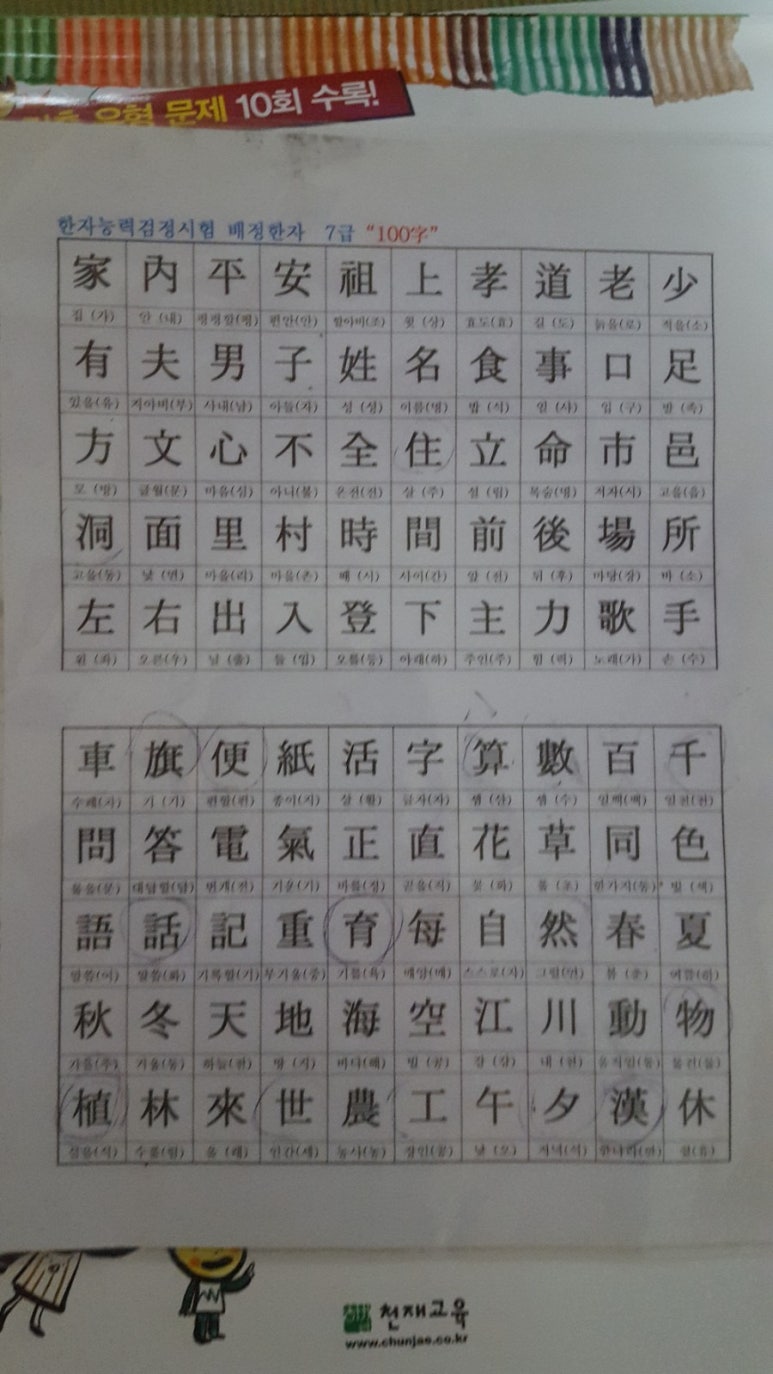 유형 문제 10회 수록!
한자능력검정시험 배정한자 7급 "100字"
家 內 平 安 祖 上 孝 道 老 少
집 (가) 안 (내) 평평할(평) 편안(안) 할아비(조) 윗 (상) 효도(효) 길 (도) 늙을(로) 적을(소)
有 夫 男 子 姓 名 食 事 口 足
있을(유) 지아비(부) 사내(남) 아들(자) 성 (성) 이름(명) 밥 (식) 일 (사) 입 (구) 발 (족)
方 文 心 不 全 住 立 命 市 邑
모 (방) 글월(문) 마음(심) 아니(불) 온전(전) 살 (주) 설 (립) 목숨(명) 저자(시) 고을(읍)
洞 面 里 村 時 間 前 後 場 所
고을(동) 낯 (면) 마을(리) 마을(촌) 때 (시) 사이(간) 앞 (전) 뒤 (후) 마당(장) 바 (소)
左 右 出 入 登 下 主 力 歌 手
왼 (좌) 오른(우) 날 (출) 들 (입) 오를(등) 아래(하) 주인(주) 힘 (력) 노래(가) 손 (수)
車 旗 便 紙 活 字 算 數 百 千
수레(차) 기 (기) 편할(편) 종이(지) 살 (활) 글자(자) 셈 (산) 셈 (수) 일백(백) 일천(천)
問 答 電 氣 正 直 花 草 同 色
물을(문) 대답할(답) 번개(전) 기운(기) 바를(정) 곧을(직) 꽃 (화) 풀 (초) 한가지(동) 빛 (색)
語 話 記 重 育 每 自 然 春 夏
말씀(어) 말씀(화) 기록할(기) 무거울(중) 기를(육) 매양(매) 스스로(자) 그럴(연) 봄 (춘) 여름(하)
秋 冬 天 地 海 空 江 川 動 物
가을(추) 겨울(동) 하늘(천) 땅 (지) 바다(해) 빌 (공) 강 (강) 내 (천) 움직일(동) 물건(물)
植 林 來 世 農 工 午 夕 漢 休
심을(식) 수풀(림) 올 (래) 인간(세) 농사(농) 장인(공) 낮 (오) 저녁(석) 한나라(한) 쉴(휴)
천재교육
www.chunjae.co.kr